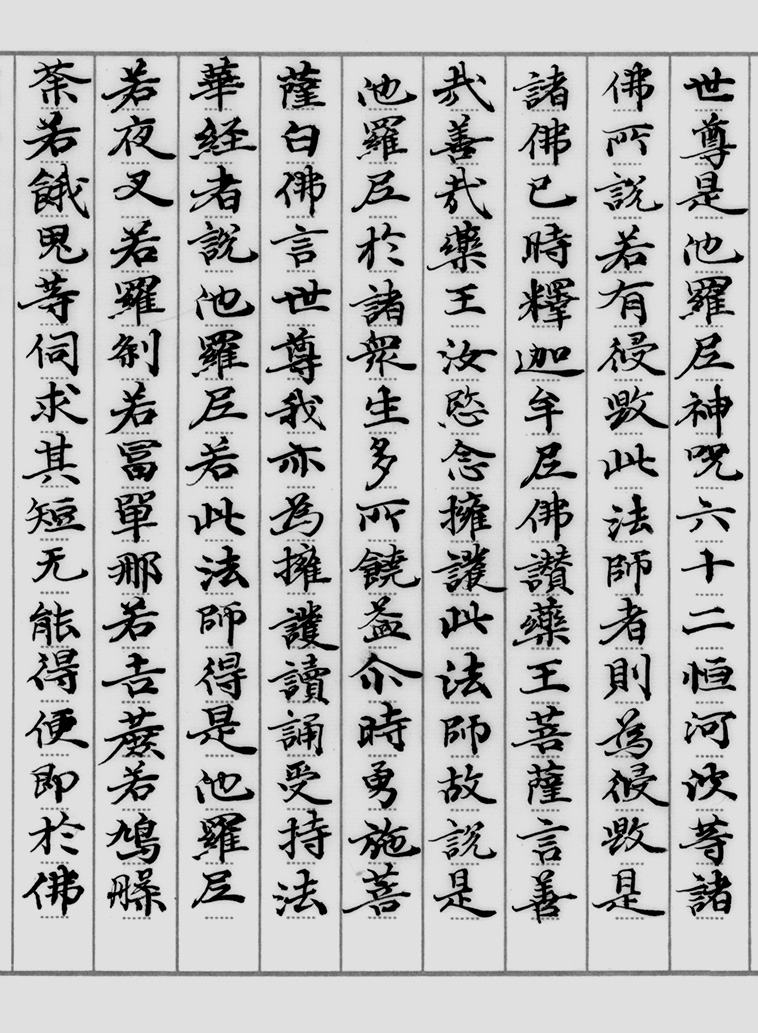 世尊是陁羅尼神呪六十二恒河沙等諸
佛所說若有侵毀此法師者則為侵毀是
諸佛已時釋迦牟尼佛讚藥王菩薩言善
哉善哉藥王汝愍念擁護此法師故說是
陁羅尼於諸衆生多所饒益尒時勇施菩
薩白佛言世尊我亦為擁護讀誦受持法
華経者說陁羅尼若此法師得是陁羅尼
若夜叉若羅剎若富單那若吉蔗若鳩槃
荼若餓鬼等伺求其短无能得便即於佛